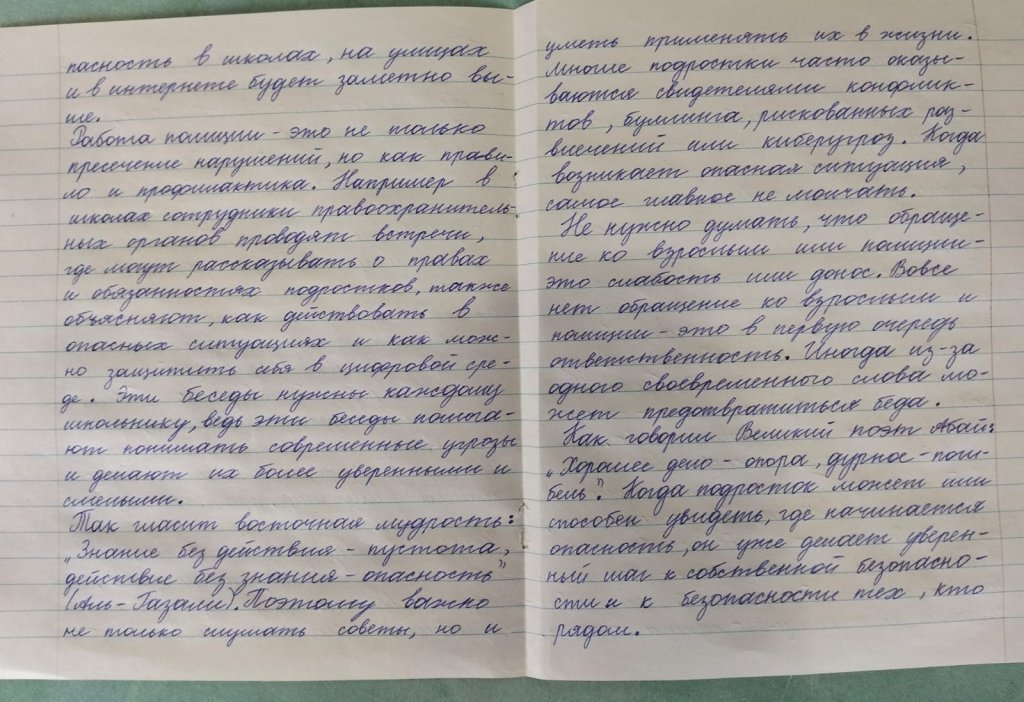 пасность в школах, на улицах
и в интернете будет заметно вы-
ше.
Работа полиции - это не только
пресечение нарушений, но как прави-
ло и профилактика. Например в
школах сотрудники правоохранитель-
ных органов проводят встречи,
где могут рассказывать о правах
и обязанностях подростков, также
объясняют, как действовать в
опасных ситуациях и как мож-
но защитить себя в цифровой сре-
де. Эти беседы нужны каждому
школьнику, ведь эти беседы помога-
ют понимать современные угрозы
и делают их более уверенными и
смелыми.
Так гласит восточная мудрость:
„Знание без действия - пустота,
действие без знания - опасность"
(Аль-Газали). Поэтому важно
не только слушать советы, но и
уметь применять их в жизни.
Многие подростки часто оказы-
ваются свидетелями конфлик-
тов, буллинга, рискованных раз-
влечений или киберугроз. Когда
возникает опасная ситуация,
самое главное не молчать.
Не нужно думать, что обраще-
ние ко взрослым или полиции -
это слабость или донос. Вовсе
нет обращение ко взрослым и
полиции - это в первую очередь
ответственность. Иногда из-за
одного своевременного слова мо-
жет предотвратиться беда.
Как говорил Великий поэт Абай:
„Хорошее дело - опора, дурное - поги-
бель". Когда подросток может или
способен увидеть, где начинается
опасность, он уже делает уверен-
ный шаг к собственной безопасно-
сти и к безопасности тех, кто
рядом.